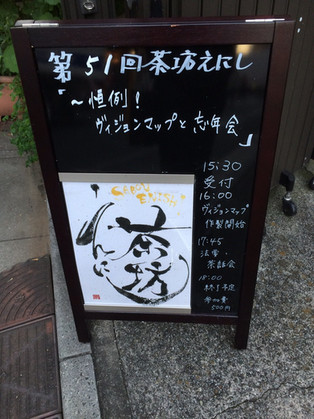 第51回茶坊えにし
「～恒例！
ヴィジョンマップと忘年会」
15:30
受付
16:00
ヴィジョンマップ
作製開始
17:45
法会・
茶話会
18:00
終了予定
参加費
500円
SABOU
ENISHI
茶坊
えにし